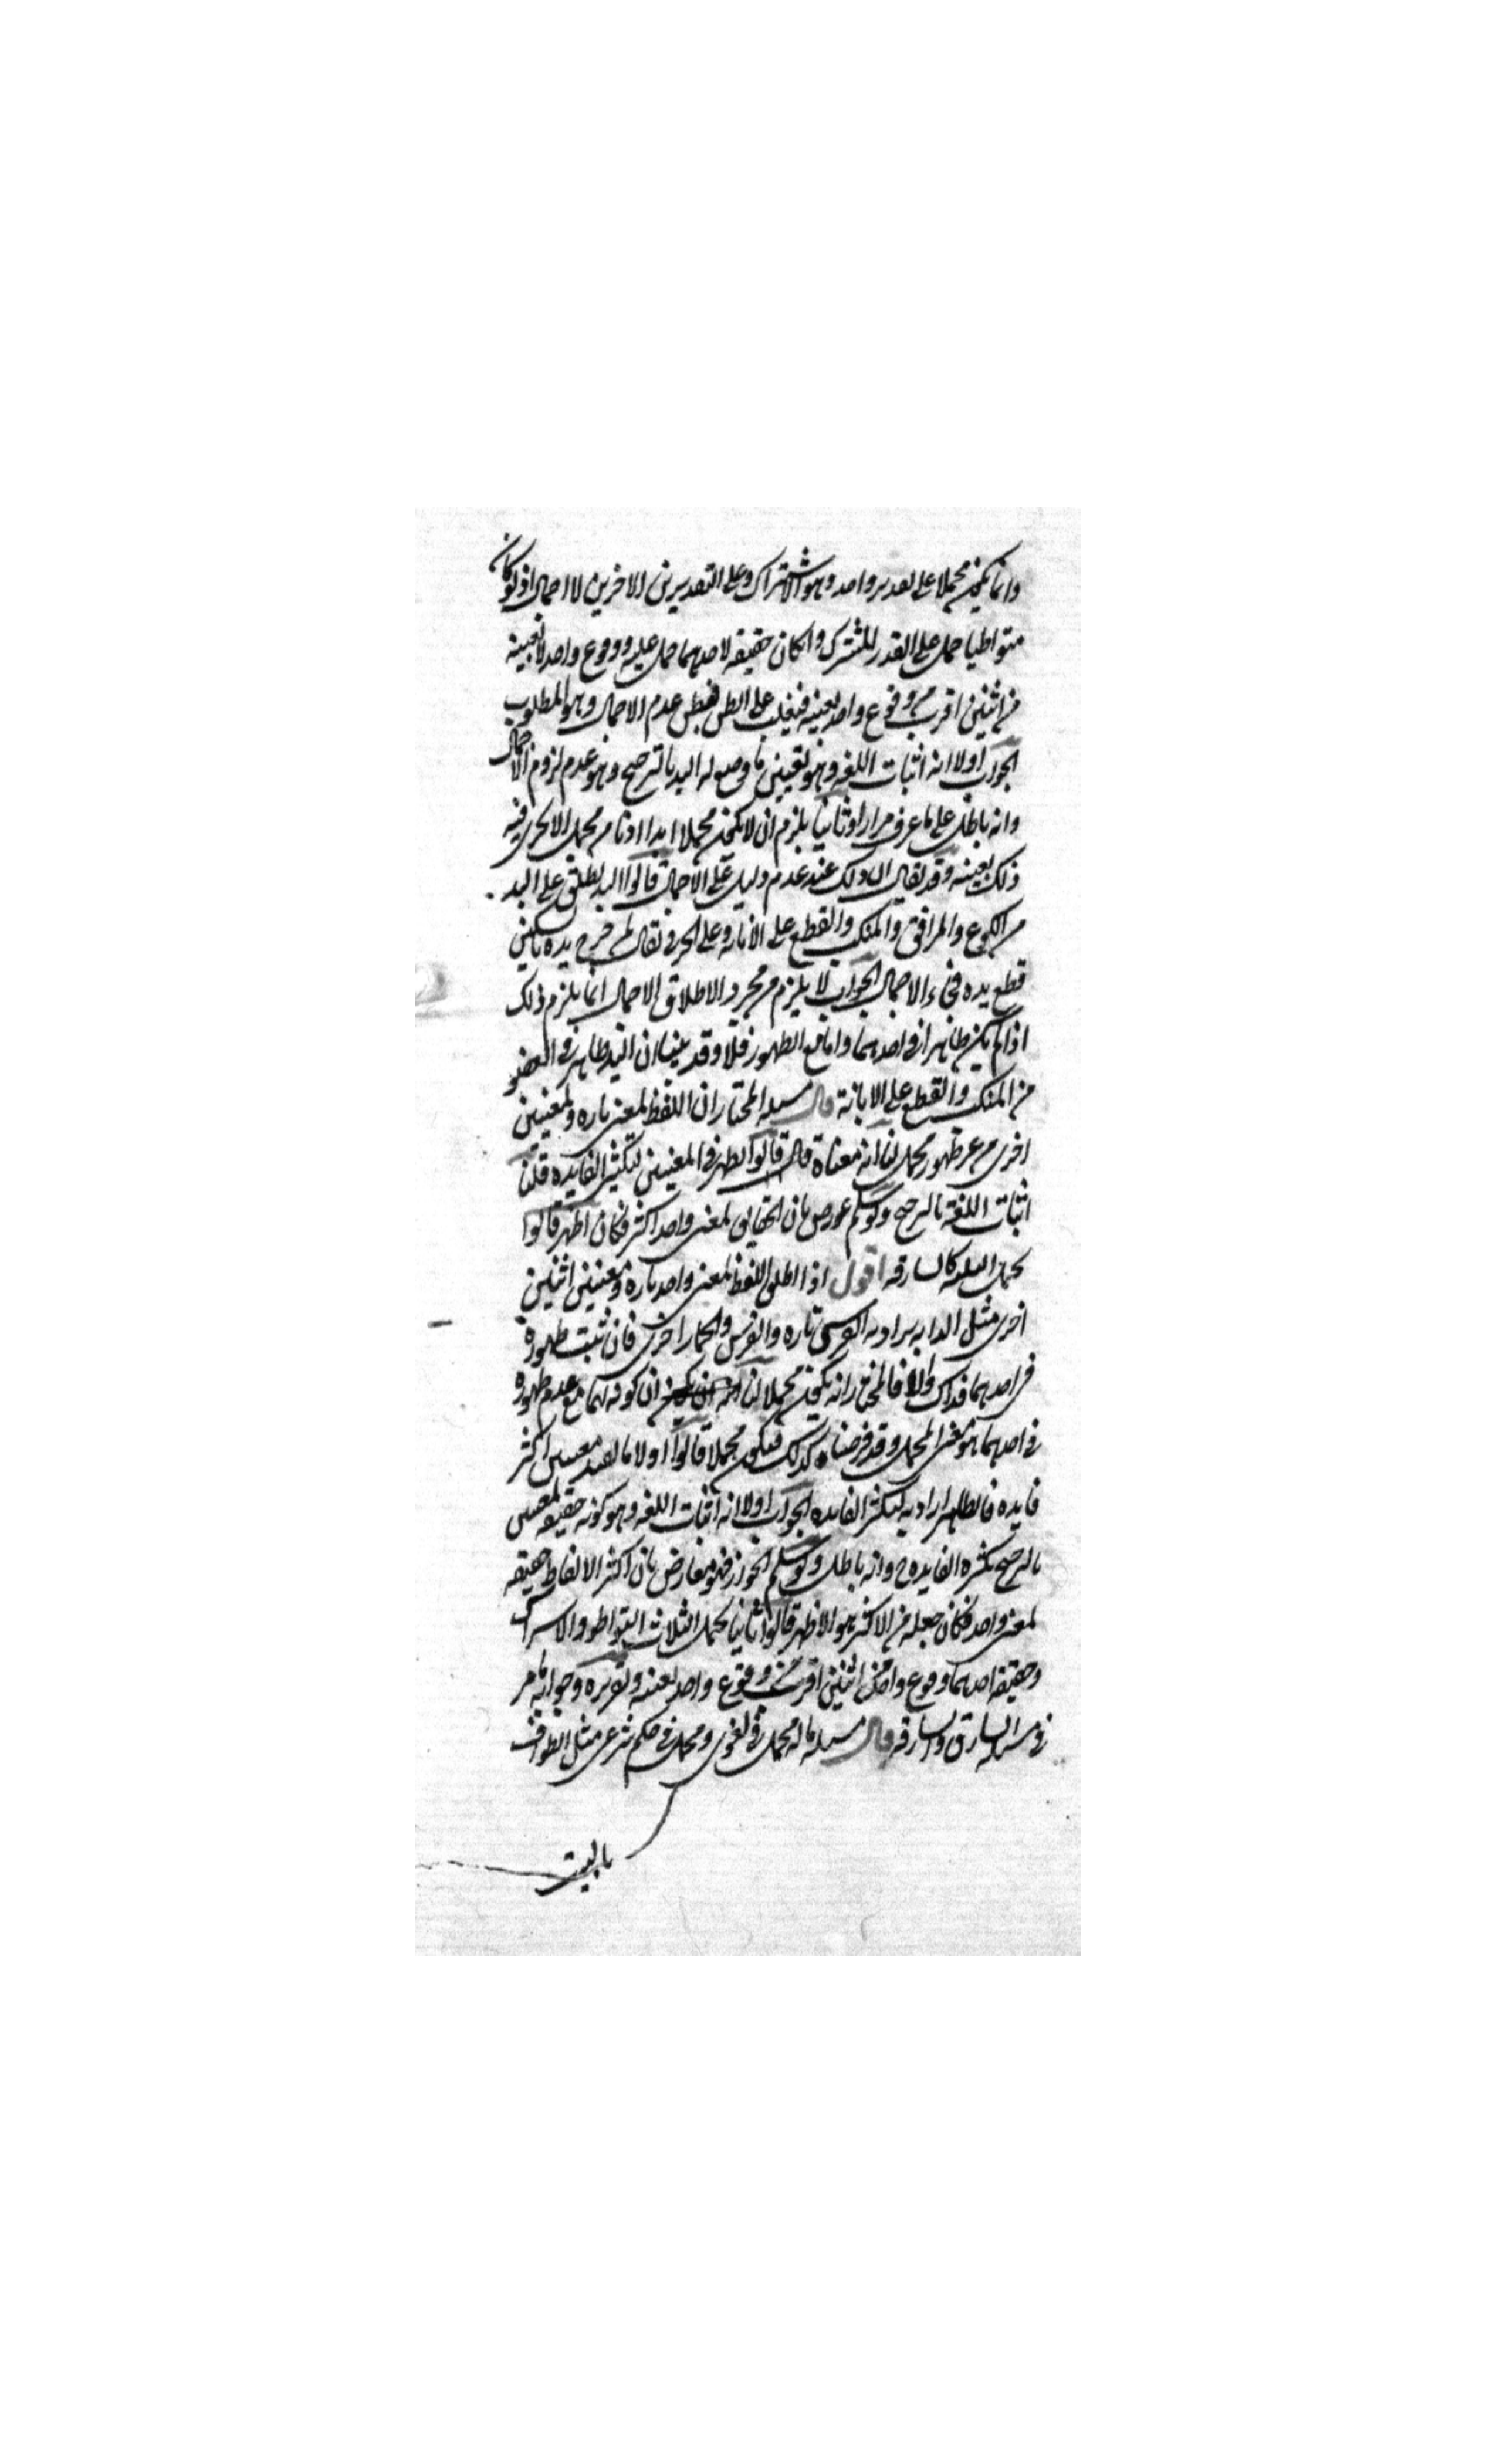 وانما يكون مجملا على تقدير واحد وهو الاشتراك وعلى التقديرين الاخرين لا اجمال اذ لو كان
متواطيا حمل على القدر المشترك وان كان حقيقه لاحدهما حمل عليه ووقوع واحد لا بعينه
من اثنين اقرب من وقوع واحد بعينه فيغلب على الظن فيظن عدم الاجمال وهو المطلوب
الجواب اولا انه اثبات اللغه وهو تعيين ما وضع له اليد بالترجيح وهو عدم لزوم الاجمال
وانه باطل على ما عرف مرارا وثانيا يلزم ان لا يكون مجملا ابدا اذ ما من مجمل الا يجرى فيه
ذلك بعينه وقد يقال ان ذلك عند عدم دليل على الاجمال قالوا اليد يطلق على اليد
من الكوع والمرافق والمنكب والقطع على الابانه وعلى الجرح فيقال لمن جرح يده بالسكين
قطع يده فجاء الاجمال الجواب لا يلزم من مجرد الاطلاق الاجمال انما يلزم ذلك
اذا لم يكن ظاهرا فى احدهما واما مع الظهور فلا وقد بينا ان اليد ظاهر فى العضو
من المنكب والقطع على الابانة قال مسله المختار ان اللفظ لمعنى تاره ولمعنيين
اخرى من غير ظهور مجمل لنا انه معناه قال قالوا يظهر فى المعنيين لتكثير الفايده قلنا
اثبات اللغة بالترجيح ولو سلم عورض بان الحقايق لمعنى واحد اكثر فكان اظهر قالوا
يحتمل الثلثه كالسارقه اقول اذا اطلق اللفظ لمعنى واحد تارة ولمعنيين اثنين
اخرى مثل الدابه يراد به الفرس تاره والفرس والحمار اخرى فان ثبت ظهوره
فى احدهما فذاك والا فالمختار انه يكون مجملا لنا ان كونه لهما مع عدم ظهوره
فى احدهما هو معنى المجمل وقد فرضناه كذلك فيكون مجملا قالوا اولا ما يفيد معنيين اكثر
فايده فالظاهر ارادته لتكثر الفايده الجواب اولا انه اثبات اللغه وهو كونه حقيقه لمعنيين
بالترجيح بكثره الفايده وانه باطل ولو سلم الجواز فهو معارض بان اكثر الالفاظ حقيقه
لمعنى واحد فكان جعله من الاكثر هو الاظهر قالوا ثانيا يحتمل الثلاث التواطو والاشتراك
وحقيقه احدهما ووقوع واحد من اثنين اقرب من وقوع واحد بعينه وتقريره وجوابه ما مر
فى مسله السارق والسارقه قال مسله ما له محمل لغوى ومحمل فى حكم شرعى مثل الطواف
بالبيت